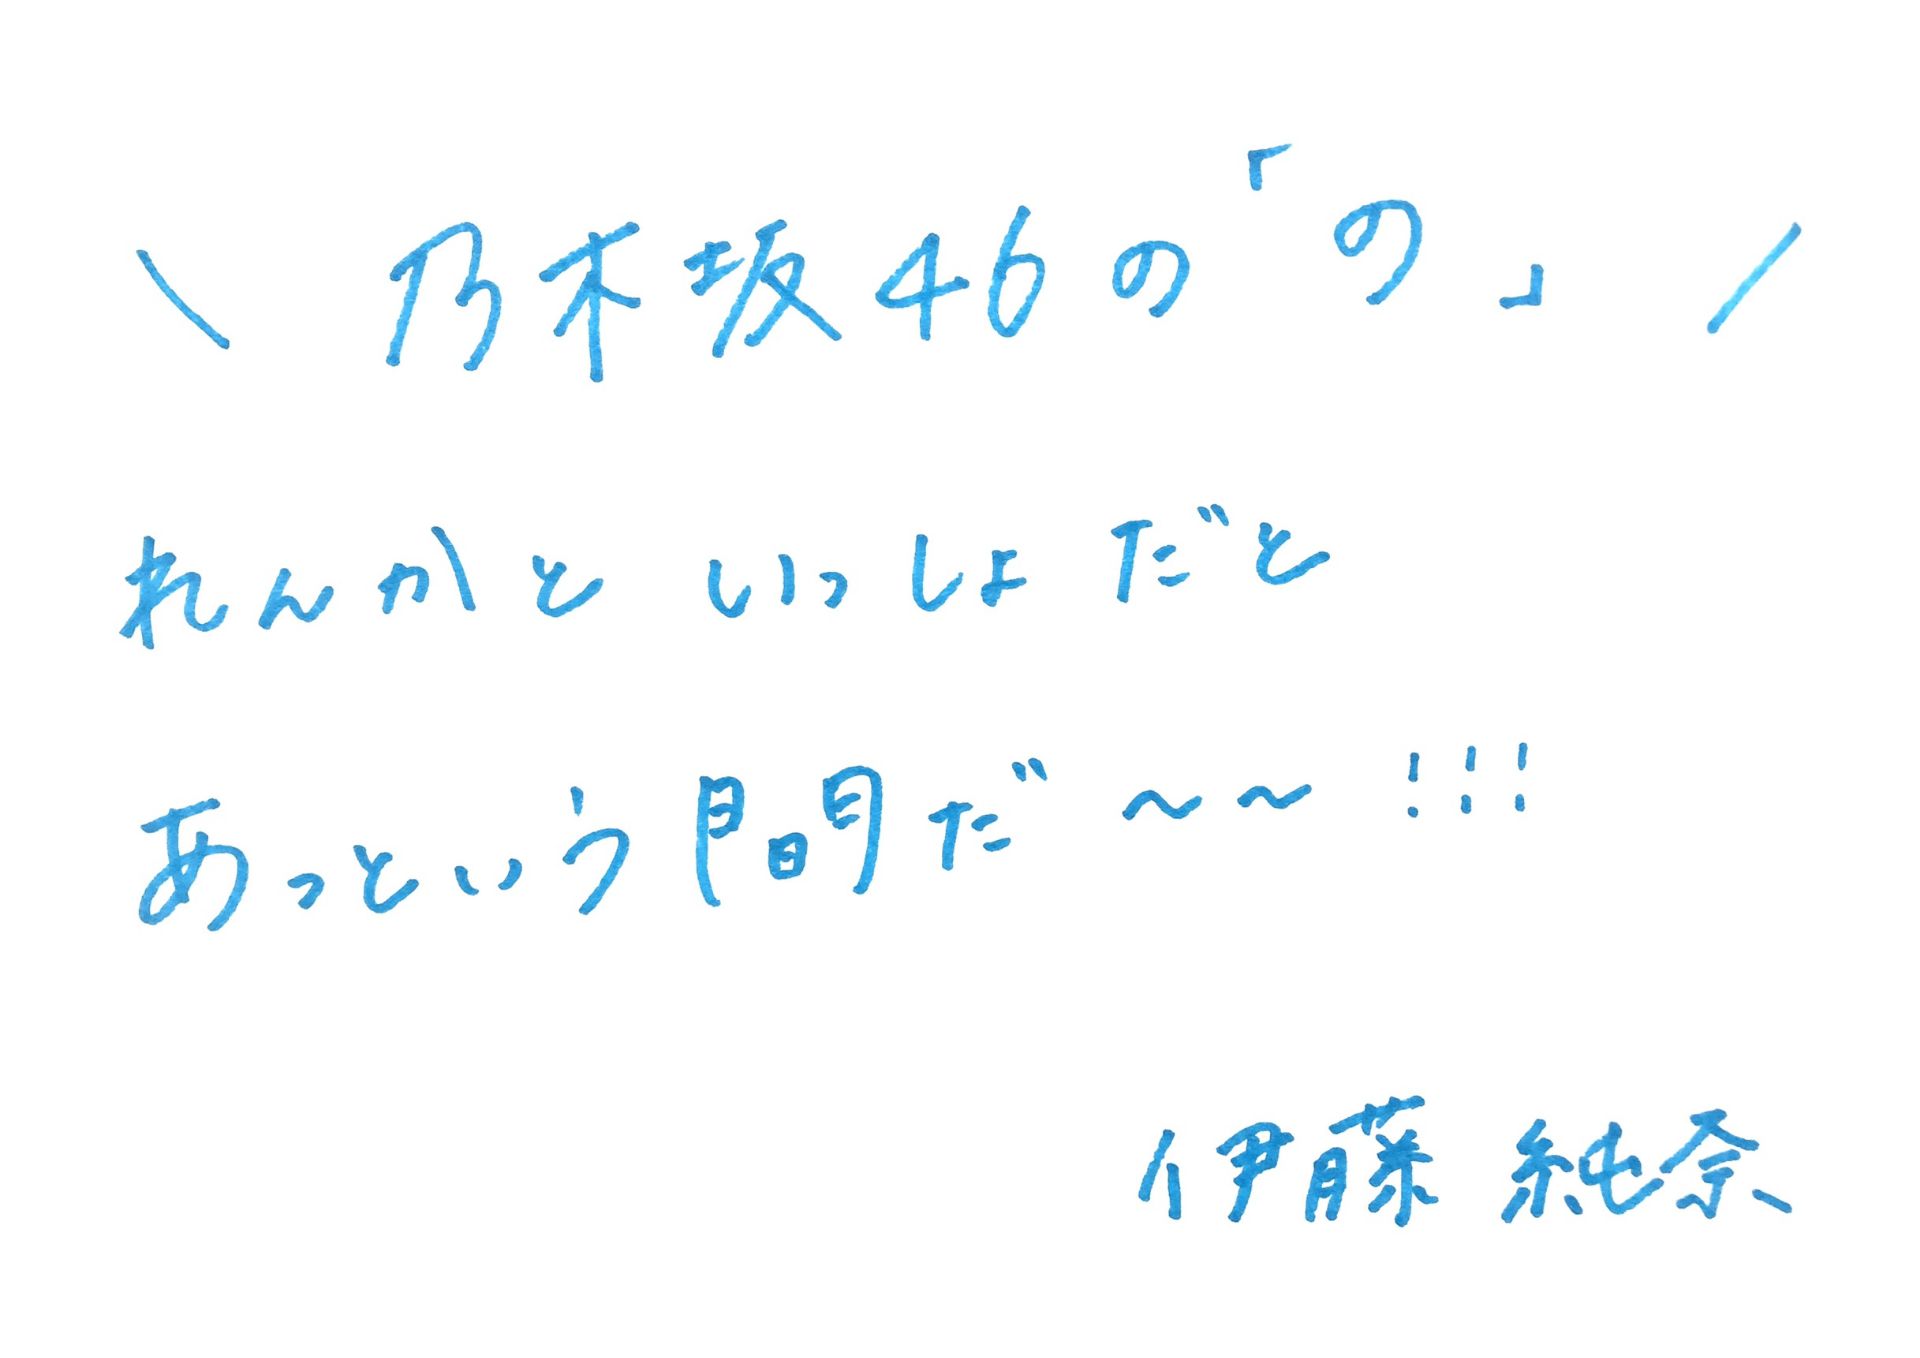 ＼ 乃木坂46の「の」 ／
れんかと いっしょ だと
あっという間だ～～!!!
伊藤 純奈